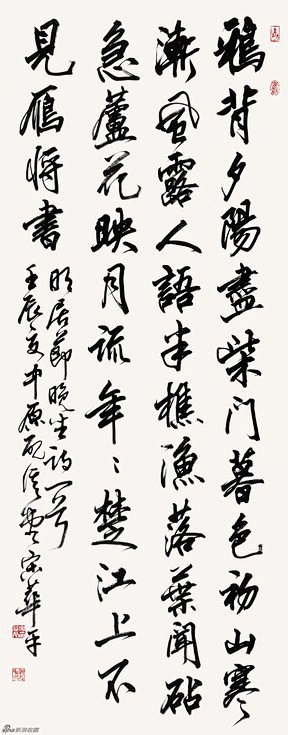 鴉背夕陽盡柴门暮色初山寒
漸風露人語半樵漁落葉聞砧
急蘆花映月疏年〻楚江上不
見雁將書
明居節晚坐詩一首
壬辰夏中原宋華平
sina新浪收藏